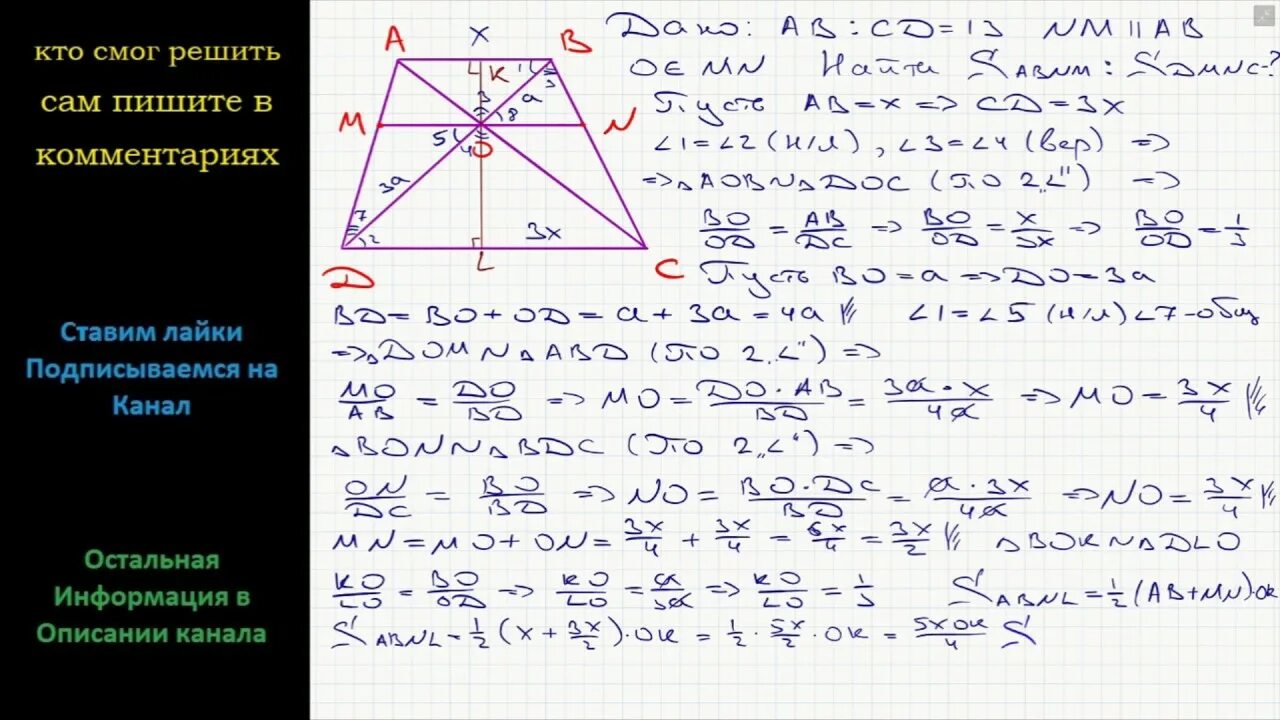 кто смог решить
сам пишите в
комментариях
Ставим лайки
Подписываемся на
Канал
Остальная
Информация в
Описании канала
A x B
K
1 3
3 a
M 5 8 N
4 O
3a
7
2 3x
D L C
Дано: AB : CD = 13 NM || AB
O ∈ MN Найти S ABNM : S DMNC - ?
Пусть AB = x => CD = 3x
∠1 = ∠2 (н/л), ∠3 = ∠4 (вер) =>
=> △AOB ~ △DOC (по 2 „∠“) =>
BO/OD = AB/DC => BO/OD = x/3x => BO/OD = 1/3
Пусть BO = a => DO = 3a
BD = BO + OD = a + 3a = 4a // ∠1 = ∠5 (н/л) ∠7 - общ
=> △DOM ~ △ABD (по 2 „∠“) =>
MO/AB = DO/BD => MO = DO · AB/BD = 3a · x/4a => MO = 3x/4 //
△BON ~ △BDC (по 2 „∠“) =>
ON/DC = BO/BD => NO = BO · DC/BD = a · 3x/4a => NO = 3x/4 //
MN = MO + ON = 3x/4 + 3x/4 = 6x/4 = 3x/2 // △BOK ~ △DLO
KO/LO = BO/OD => KO/LO = a/3a => KO/LO = 1/3 S ABNL = 1/2 (AB + MN) · OK
S ABNL = 1/2 (x + 3x/2) · OK = 1/2 · 5x/2 · OK = 5xOK/4 S